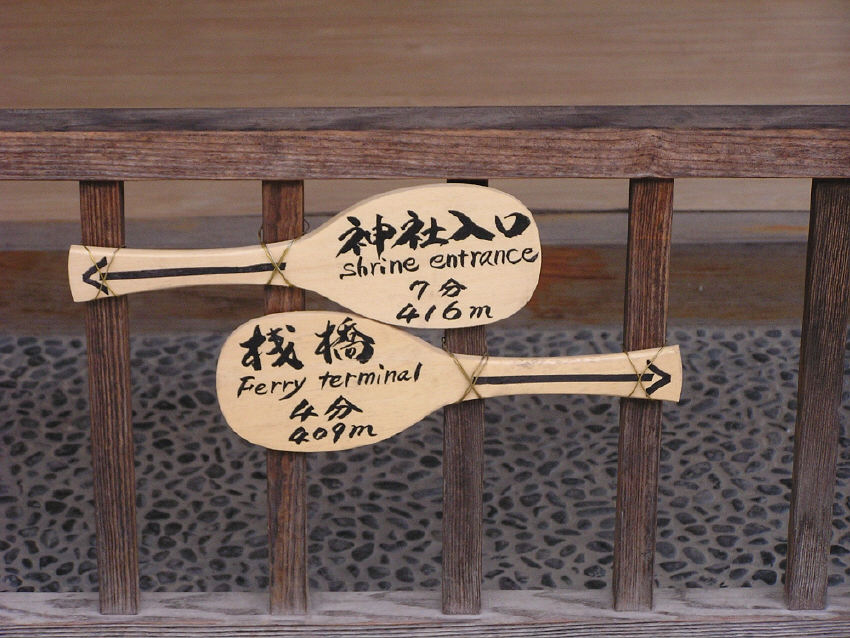 神社入口
shrine entrance
7分
416m
桟橋
Ferry terminal
4分
409m